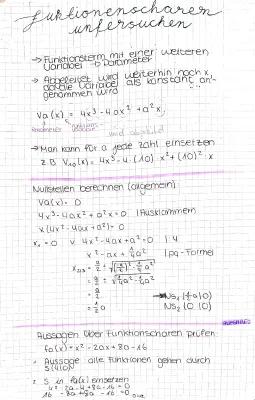 Funktionenscharen
untersuchen
→ Funktionsterm mit einer weiteren
Variabel → Parameter
→ Abgeleitet wird weiterhin nach x,
da die Variable als konstant an-
genommen wird
Va(x) = 4x³ - 4ax² + a²x
Parameter
wird
→ Man kann für a jede Zahl einsetzen
z.B V₁₀(x) = 4x³ - 4·(10)·x² + (10)²·x
Nullstellen berechnen (allgemein)
Va(x) = 0
4x³ - 4ax² + a²x = 0 | Ausklammern
x(4x² - 4ax + a²) = 0
x₁ = 0 v 4x² - 4ax + a² = 0 | :4
x² - ax + ¼a² | pq-Formel
= a/2
= a/2
= ½a
NS₁ (½a|0)
NS₂ (0|0)
Aussagen über Funktionsscharen prüfen
fa(x) = x² - 2ax + 8a - 16
Aussage: alle Funktionen gehen durch
S(4|0)
S in fa(x) einsetzen
4² - 2a·4 + 8a - 16 = 0
16 - 8a + 8a - 16 = 0